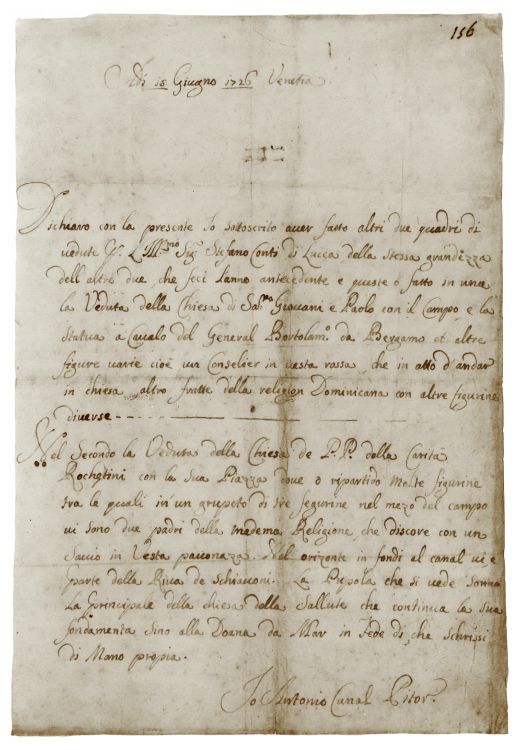 156
Adi 18 Giugno 1726 Venetia
Dichiaro con la presente Io sottoscrito aver fatto altri due quadri di
vedute Ill.mo Sig. Stefano Conti di Lucca della stessa grandezza
dell altre due che feci lanno antecedente e queste o fatto in una
la Veduta della Chiesa di Giovani e Paolo con il Campo e la
statua à Cavalo del General Bortolam.o da Bergamo et altre
figure varie cioè un Conselier in vesta rossa che in atto d'andar
in chiesa altro fratte della religion Dominicana con altre figurine
diverse
Nel Secondo la Veduta della Chiesa de P.P. della Carità
Rochetini con la sua Piazza dove o ripartido molte figurine
tra le quali in un grupeto di tre segurine nel mezo del campo
vi sono due padri della medema Religione che discore con un
Savio in Vesta pavonazza. Nel orizonte in fondi al canal vi e
parte della Riva de Schiavoni. La Cupola che si vede sonra
la principale della chiesa della Sallute che continua la sua
fondamenta sino alla Doana da Mar in Fede di che schrissi
di Mano propia.
Io Antonio Canal Pitor.